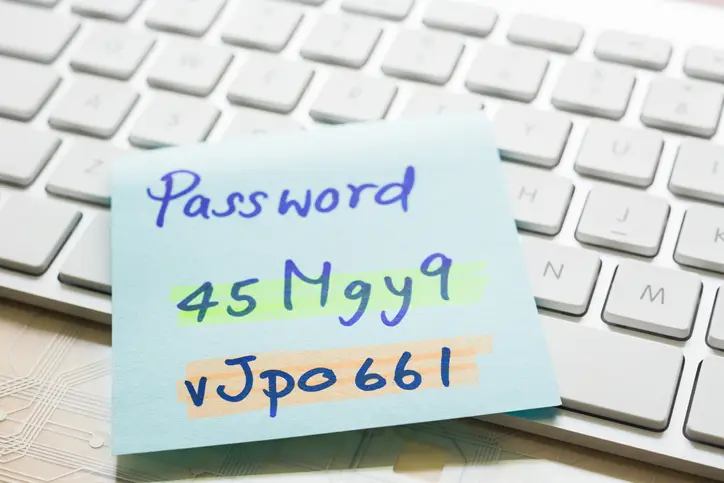 Password
45Mgy9
vJpo661
A
S
Z
H
J
K
U
N
M